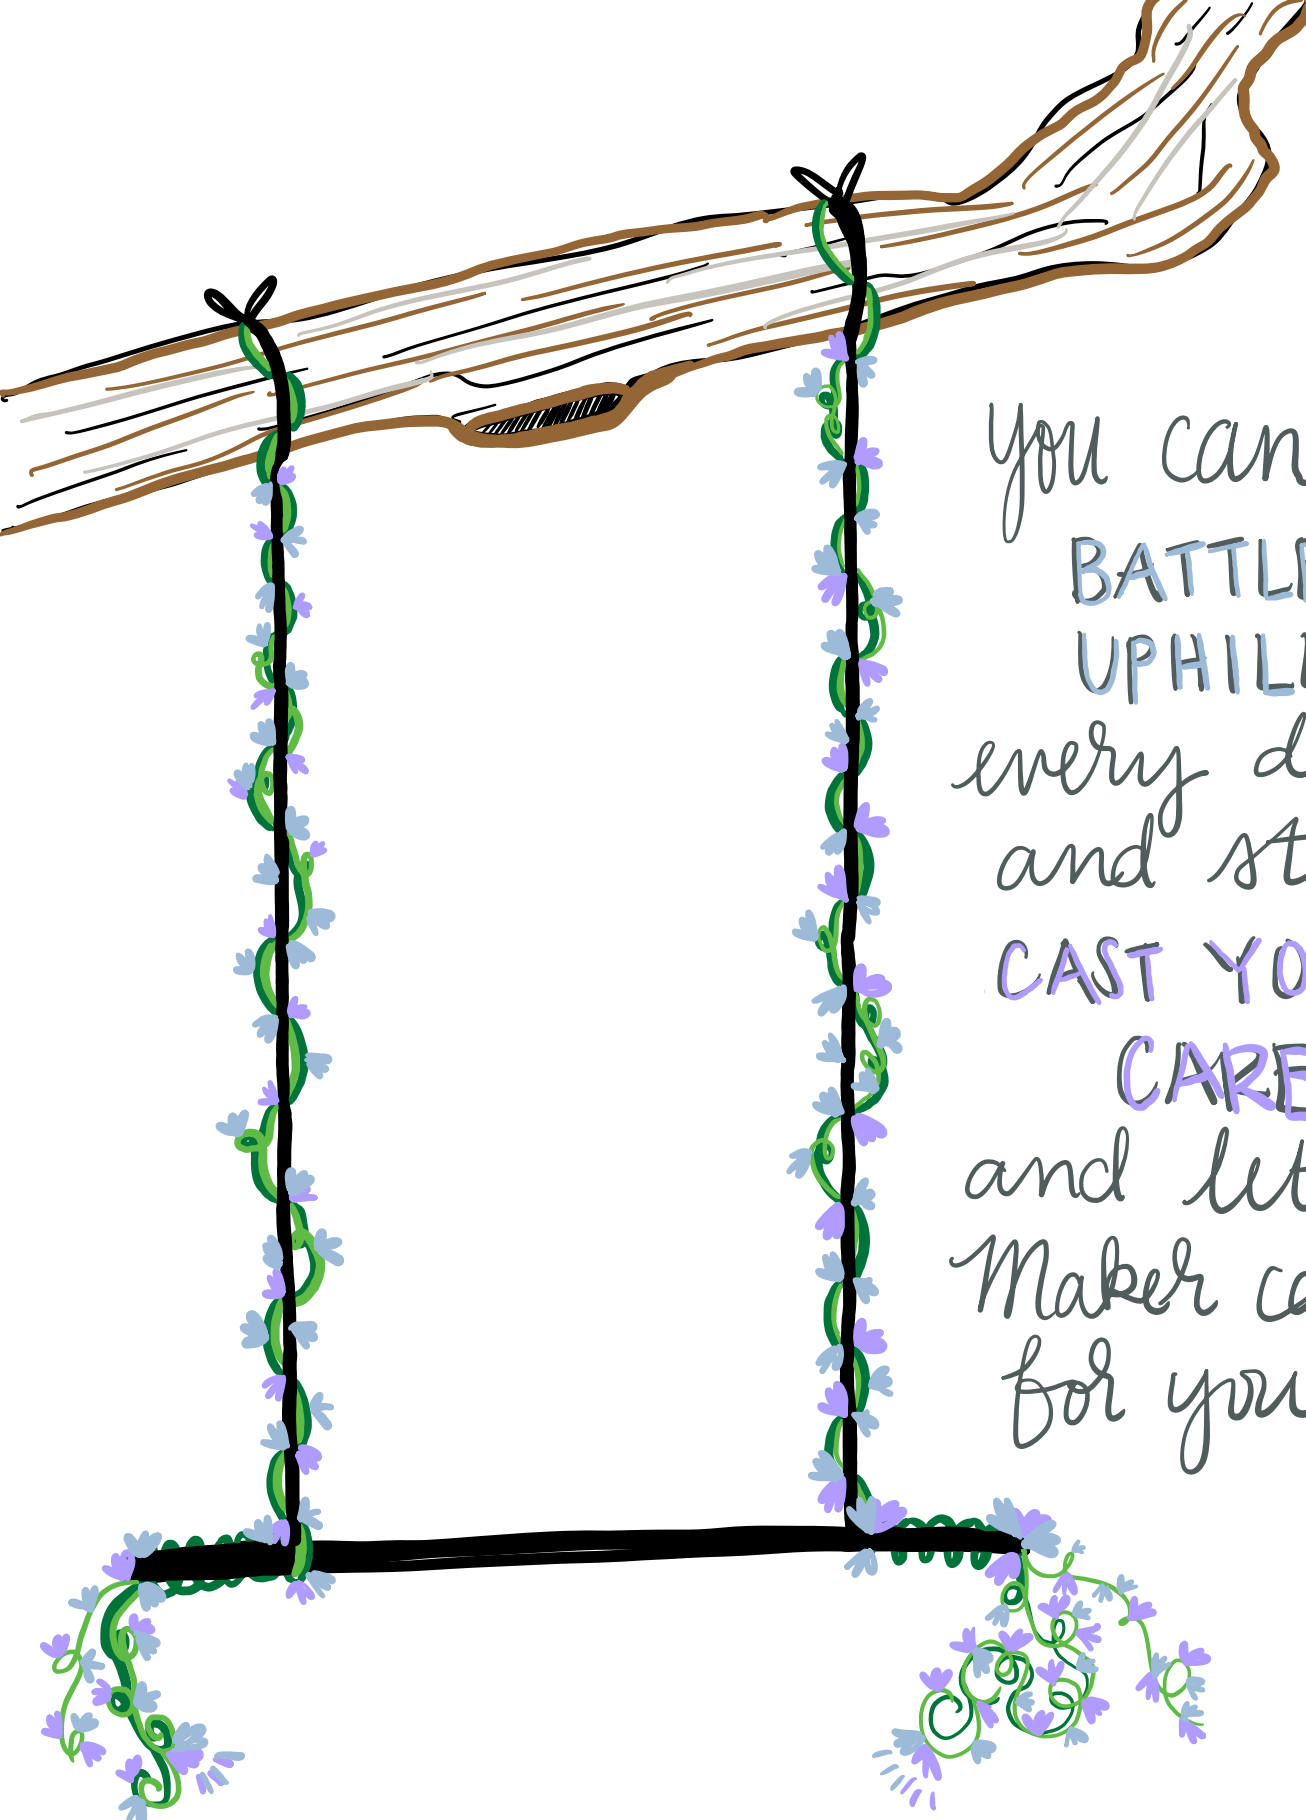 you can
BATTLE
UPHIL
every d
and st
CAST YO
CARE
and let
Maker ca
for you